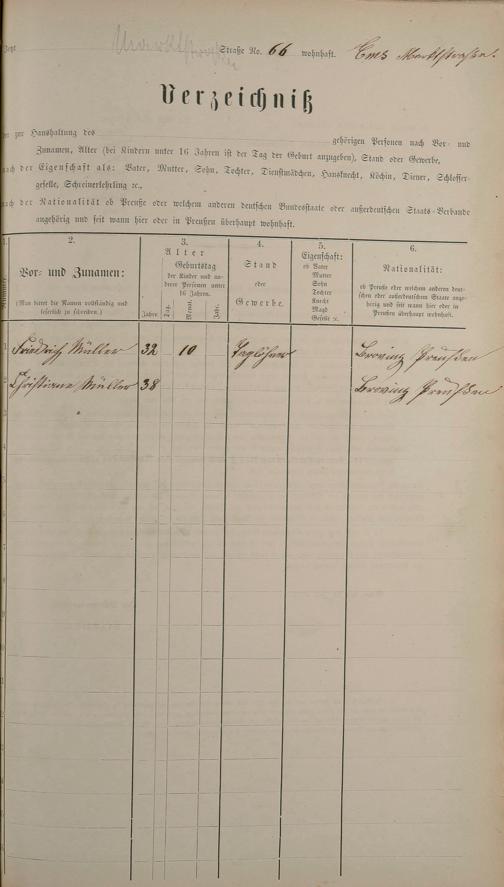 Jetzt Marktstraße Straße No. 66 wohnhaft. Ems Marktstraße.
Verzeichniß
der zur Haushaltung des gehörigen Personen nach Vor- und
Zunamen, Alter (bei Kindern unter 16 Jahren ist der Tag der Geburt anzugeben), Stand oder Gewerbe,
nach der Eigenschaft als: Vater, Mutter, Sohn, Tochter, Dienstmädchen, Hausknecht, Köchin, Diener, Schlosser-
geselle, Schreinerlehrling ꝛc.,
nach der Nationalität ob Preuße oder welchem anderen deutschen Bundesstaate oder außerdeutschen Staats-Verbande
angehörig und seit wann hier oder in Preußen überhaupt wohnhaft.
1.
Nummer
2.
Vor- und Zunamen:
(Man bittet die Namen vollständig und
leserlich zu schreiben.)
3.
Alter
Geburtstag
der Kinder und an-
derer Personen unter
16 Jahren.
Jahre
Tag.
Monat.
Jahr.
4.
Stand
oder
Gewerbe.
5.
Eigenschaft:
ob Vater
Mutter
Sohn
Tochter
Knecht
Magd
Geselle ꝛc.
6.
Nationalität:
ob Preuße oder welchem anderen deut-
schen oder außerdeutschen Staate ange-
hörig und seit wann hier oder in
Preußen überhaupt wohnhaft.
1 Friedrich Müller 32 10 Taglöhner Brovinz Preußen
2 Christiane Müller 38 Brovinz Preußen
3
4
5
6
7
8
9